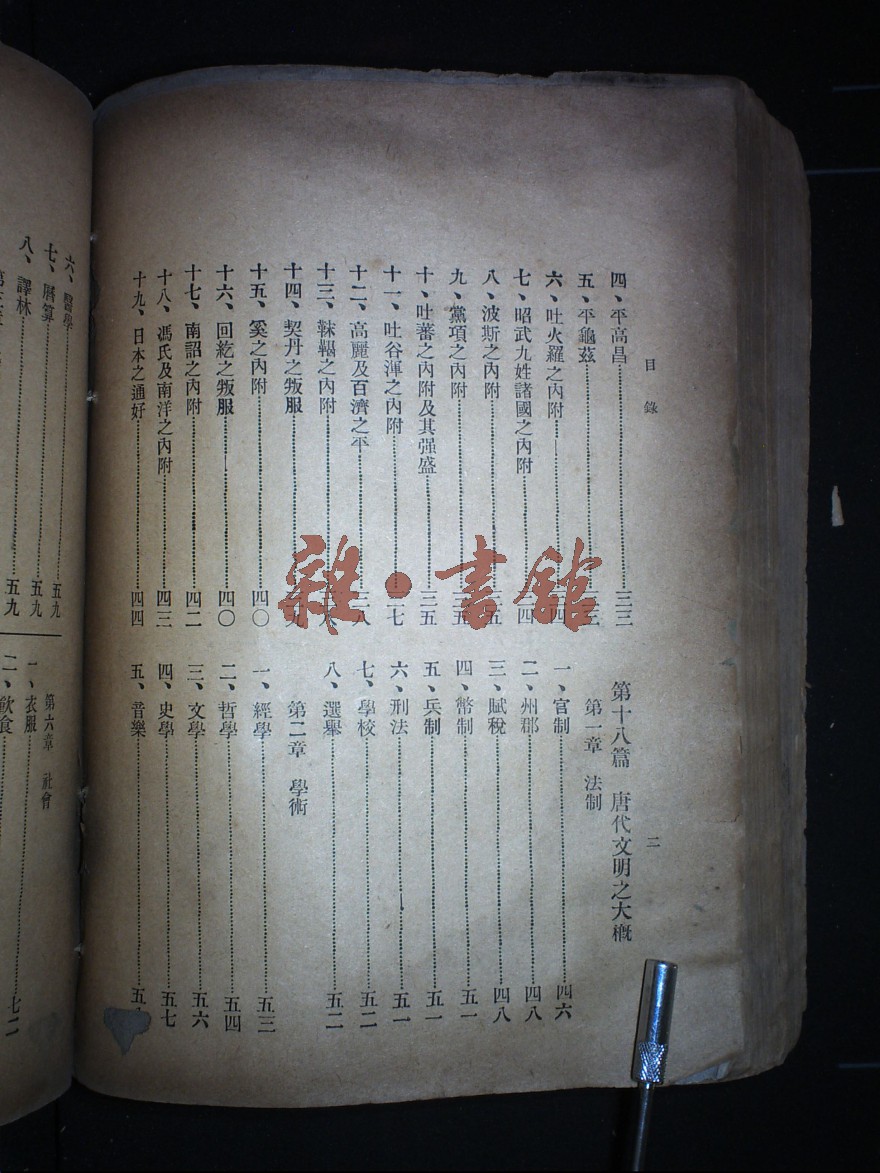 目錄 二
四、平高昌……三三
五、平龜茲……
六、吐火羅之內附……四
七、昭武九姓諸國之內附……四
八、波斯之內附……五
九、黨項之內附……三五
十、吐蕃之內附及其强盛……三五
十一、吐谷渾之內附……七
十二、高麗及百濟之平……三八
十三、靺鞨之內附……
十四、契丹之叛服……九
十五、奚之內附……四〇
十六、回紇之叛服……四〇
十七、南詔之內附……四二
十八、馮氏及南洋之內附……四三
十九、日本之通好……四四
第十八篇 唐代文明之大概
第一章 法制
一、官制……四六
二、州郡……四八
三、賦稅……四八
四、幣制……五一
五、兵制……五一
六、刑法……五一
七、學校……五二
八、選舉……五二
第二章 學術
一、經學……五三
二、哲學……五四
三、文學……五六
四、史學……五七
五、音樂……五
六、醫學……五九
七、曆算……五九
八、譯林……五九
第六章 社會
一、衣服
二、飲食……七二
雜·書館